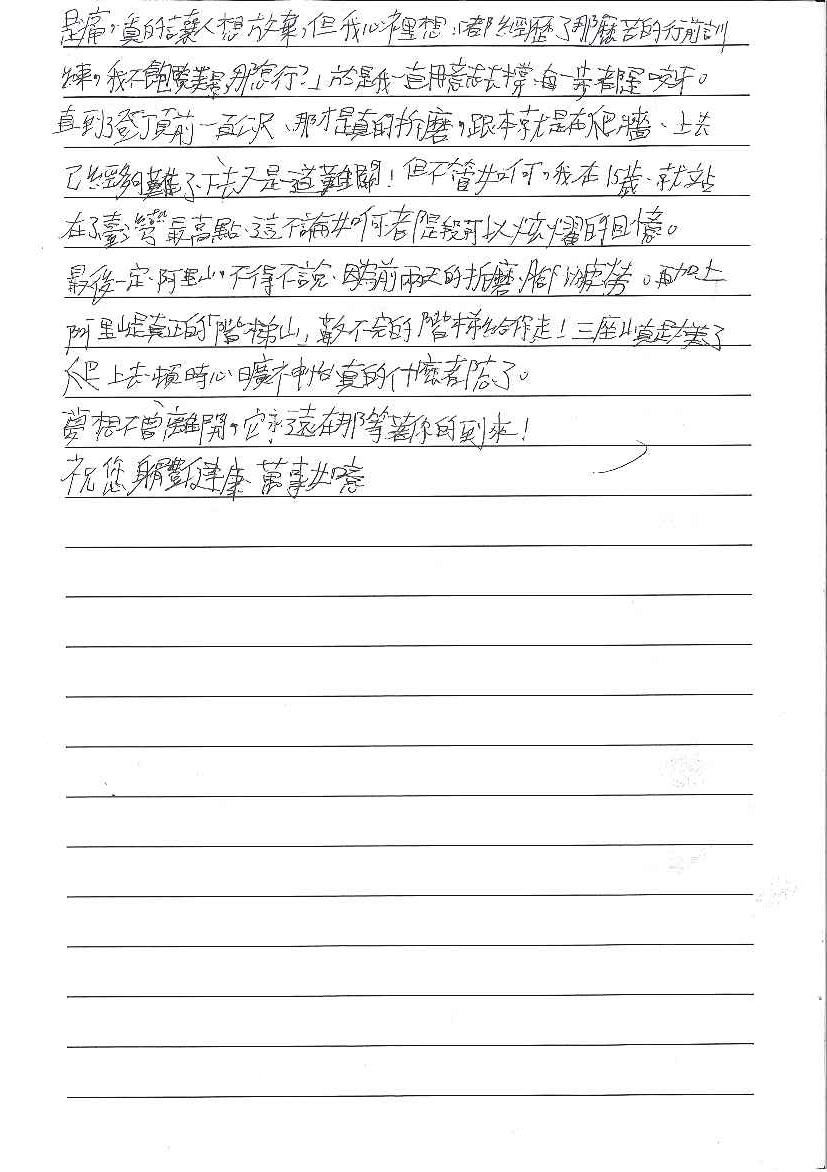 是痛,真的讓人想放棄,但我心裡想,「都經歷了那麼苦的行前訓
練,我不飽覽美景,那怎行?」於是我一直用意志去撐,每一步都是咬牙。
直到了登頂前一百公尺、那才是真的折磨,跟本就是在爬牆、上去
已經夠難了、下去又是一道難關!但不管如何,我在15歲、就站
在了臺灣最高點、這不論如何都是我可以炫耀的回憶。
最後一定、阿里山,不得不說、因為前兩天的折磨、腳以疲勞。再加上
阿里山是真正的「階梯山」數不完的階梯給你走!三座山真是太美了
爬上去頓時心曠神怡真的什麼都值了。
夢想不曾離開,它永遠在那等著你的到來!
祝您身體健康、萬事如意